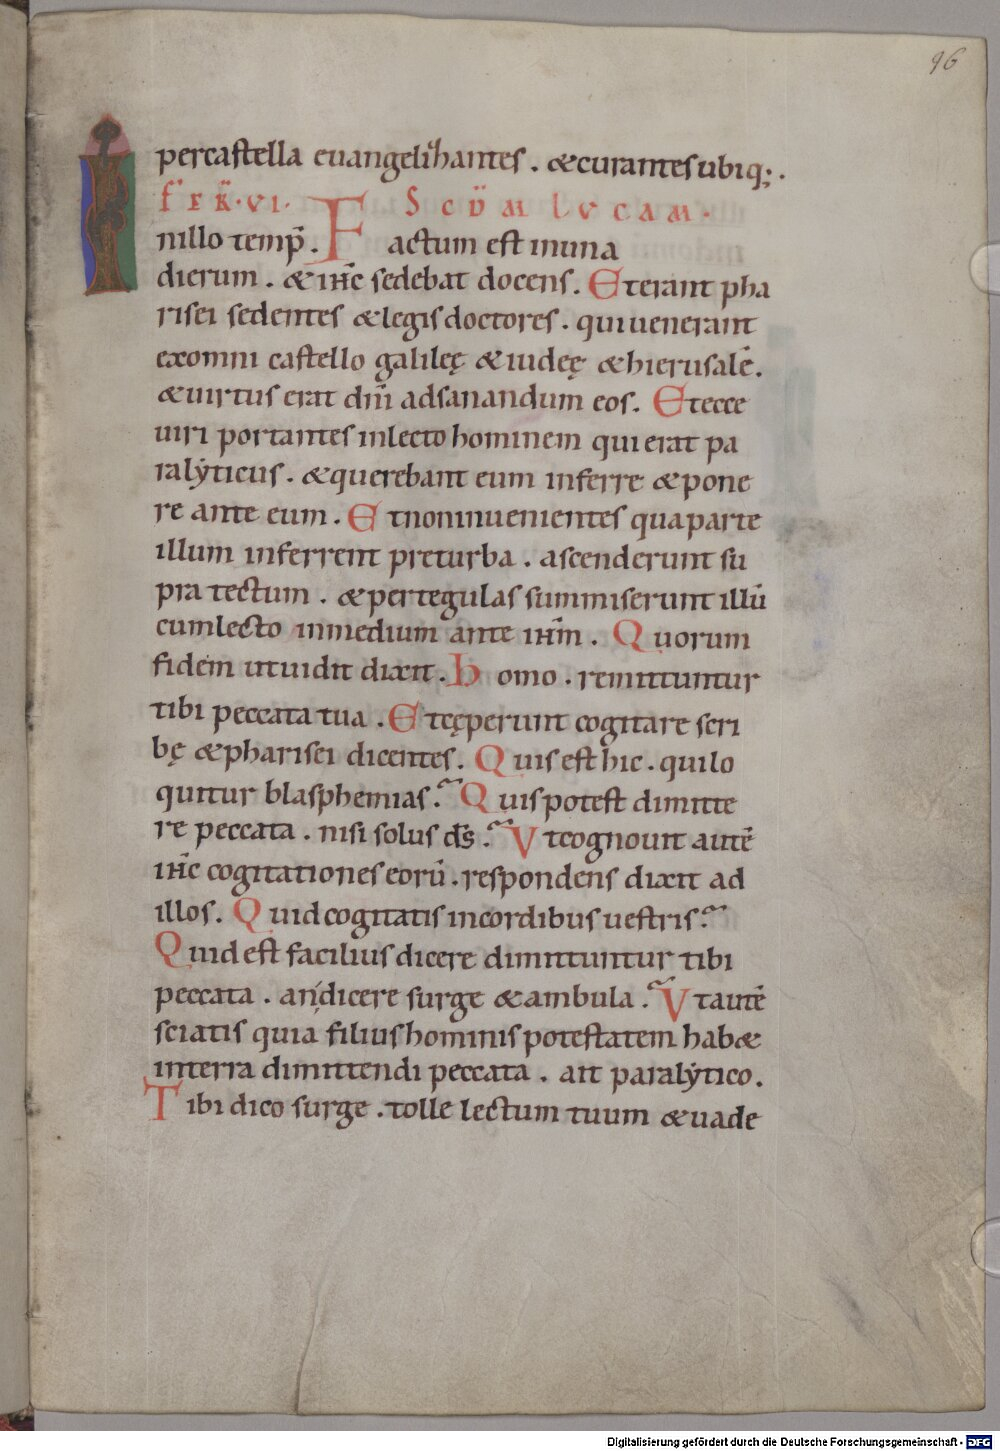 96
per castella euangelizhantes . & curantes ubiq; .
FER̄ · VI · SCD̄M LVCAM ·
Inillo temp̄ . Factum est inuna
dierum . & ih̄c sedebat docens . Et erant pha
risei sedentes & legis doctores . qui uenerant
ex omni castello galileę & iudeę & hierusalē .
& uirtus erat dn̄i ad sanandum eos . Et ecce
uiri portantes in lecto hominem qui erat pa
ralẏticus . & querebant eum inferre & pone
re ante eum . Et non inuenientes qua parte
illum inferrent pre turba . ascenderunt su
pra tectum . & per tegulas summiserunt illū
cum lecto in medium ante ih̄m . Quorum
fidem ut uidit dixit . Homo . remittuntur
tibi peccata tua . Et cęperunt cogitare scri
bę & pharisei dicentes . Quis est hic . qui lo
quitur blasphemias ? Quis potest dimitte
re peccata . nisi solus ds̄ ? Vt cognouit autē
ih̄c cogitationes eorū . respondens dixit ad
illos . Quid cogitatis in cordibus uestris ?
Quid est facilius dicere dimittuntur tibi
peccata . an dicere surge & ambula ? Vt autē
sciatis quia filius hominis potestatem hab&
in terra dimittendi peccata . ait paralẏtico .
Tibi dico surge . tolle lectum tuum & uade
Digitalisierung gefördert durch die Deutsche Forschungsgemeinschaft - DFG